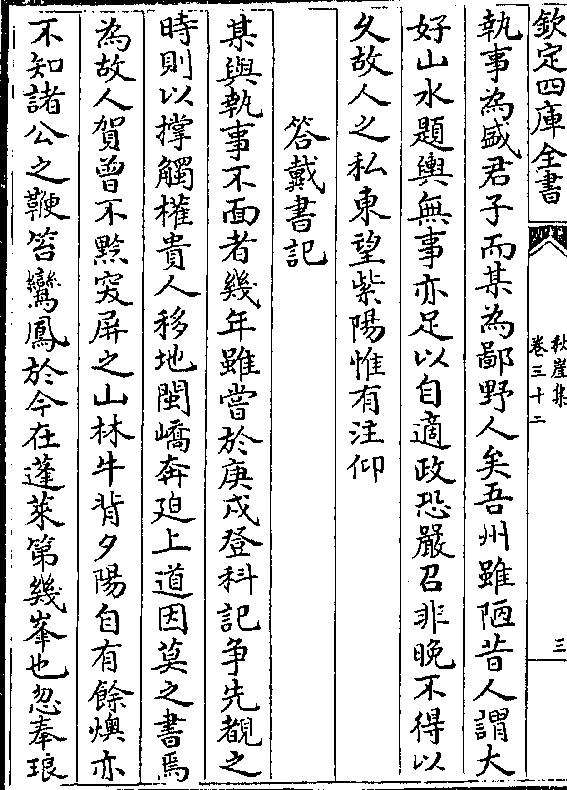 欽定四庫全書
秋崖集
卷三十二
三
執事為盛君子而某為鄙野人矣吾州雖陋昔人謂大
好山水題輿無事亦足以自適政恐嚴召非晚不得以
久故人之私東望紫陽惟有注仰
答戴書記
某與執事不面者幾年雖嘗於庚戌登科記爭先覩之
時則以撑觸權貴人移地閩嶠奔廹上道因莫之書焉
為故人賀曾不黔突屏之山林牛背夕陽自有餘燠亦
不知諸公之鞭笞鸞鳳於今在蓬萊第幾峯也忽奉琅